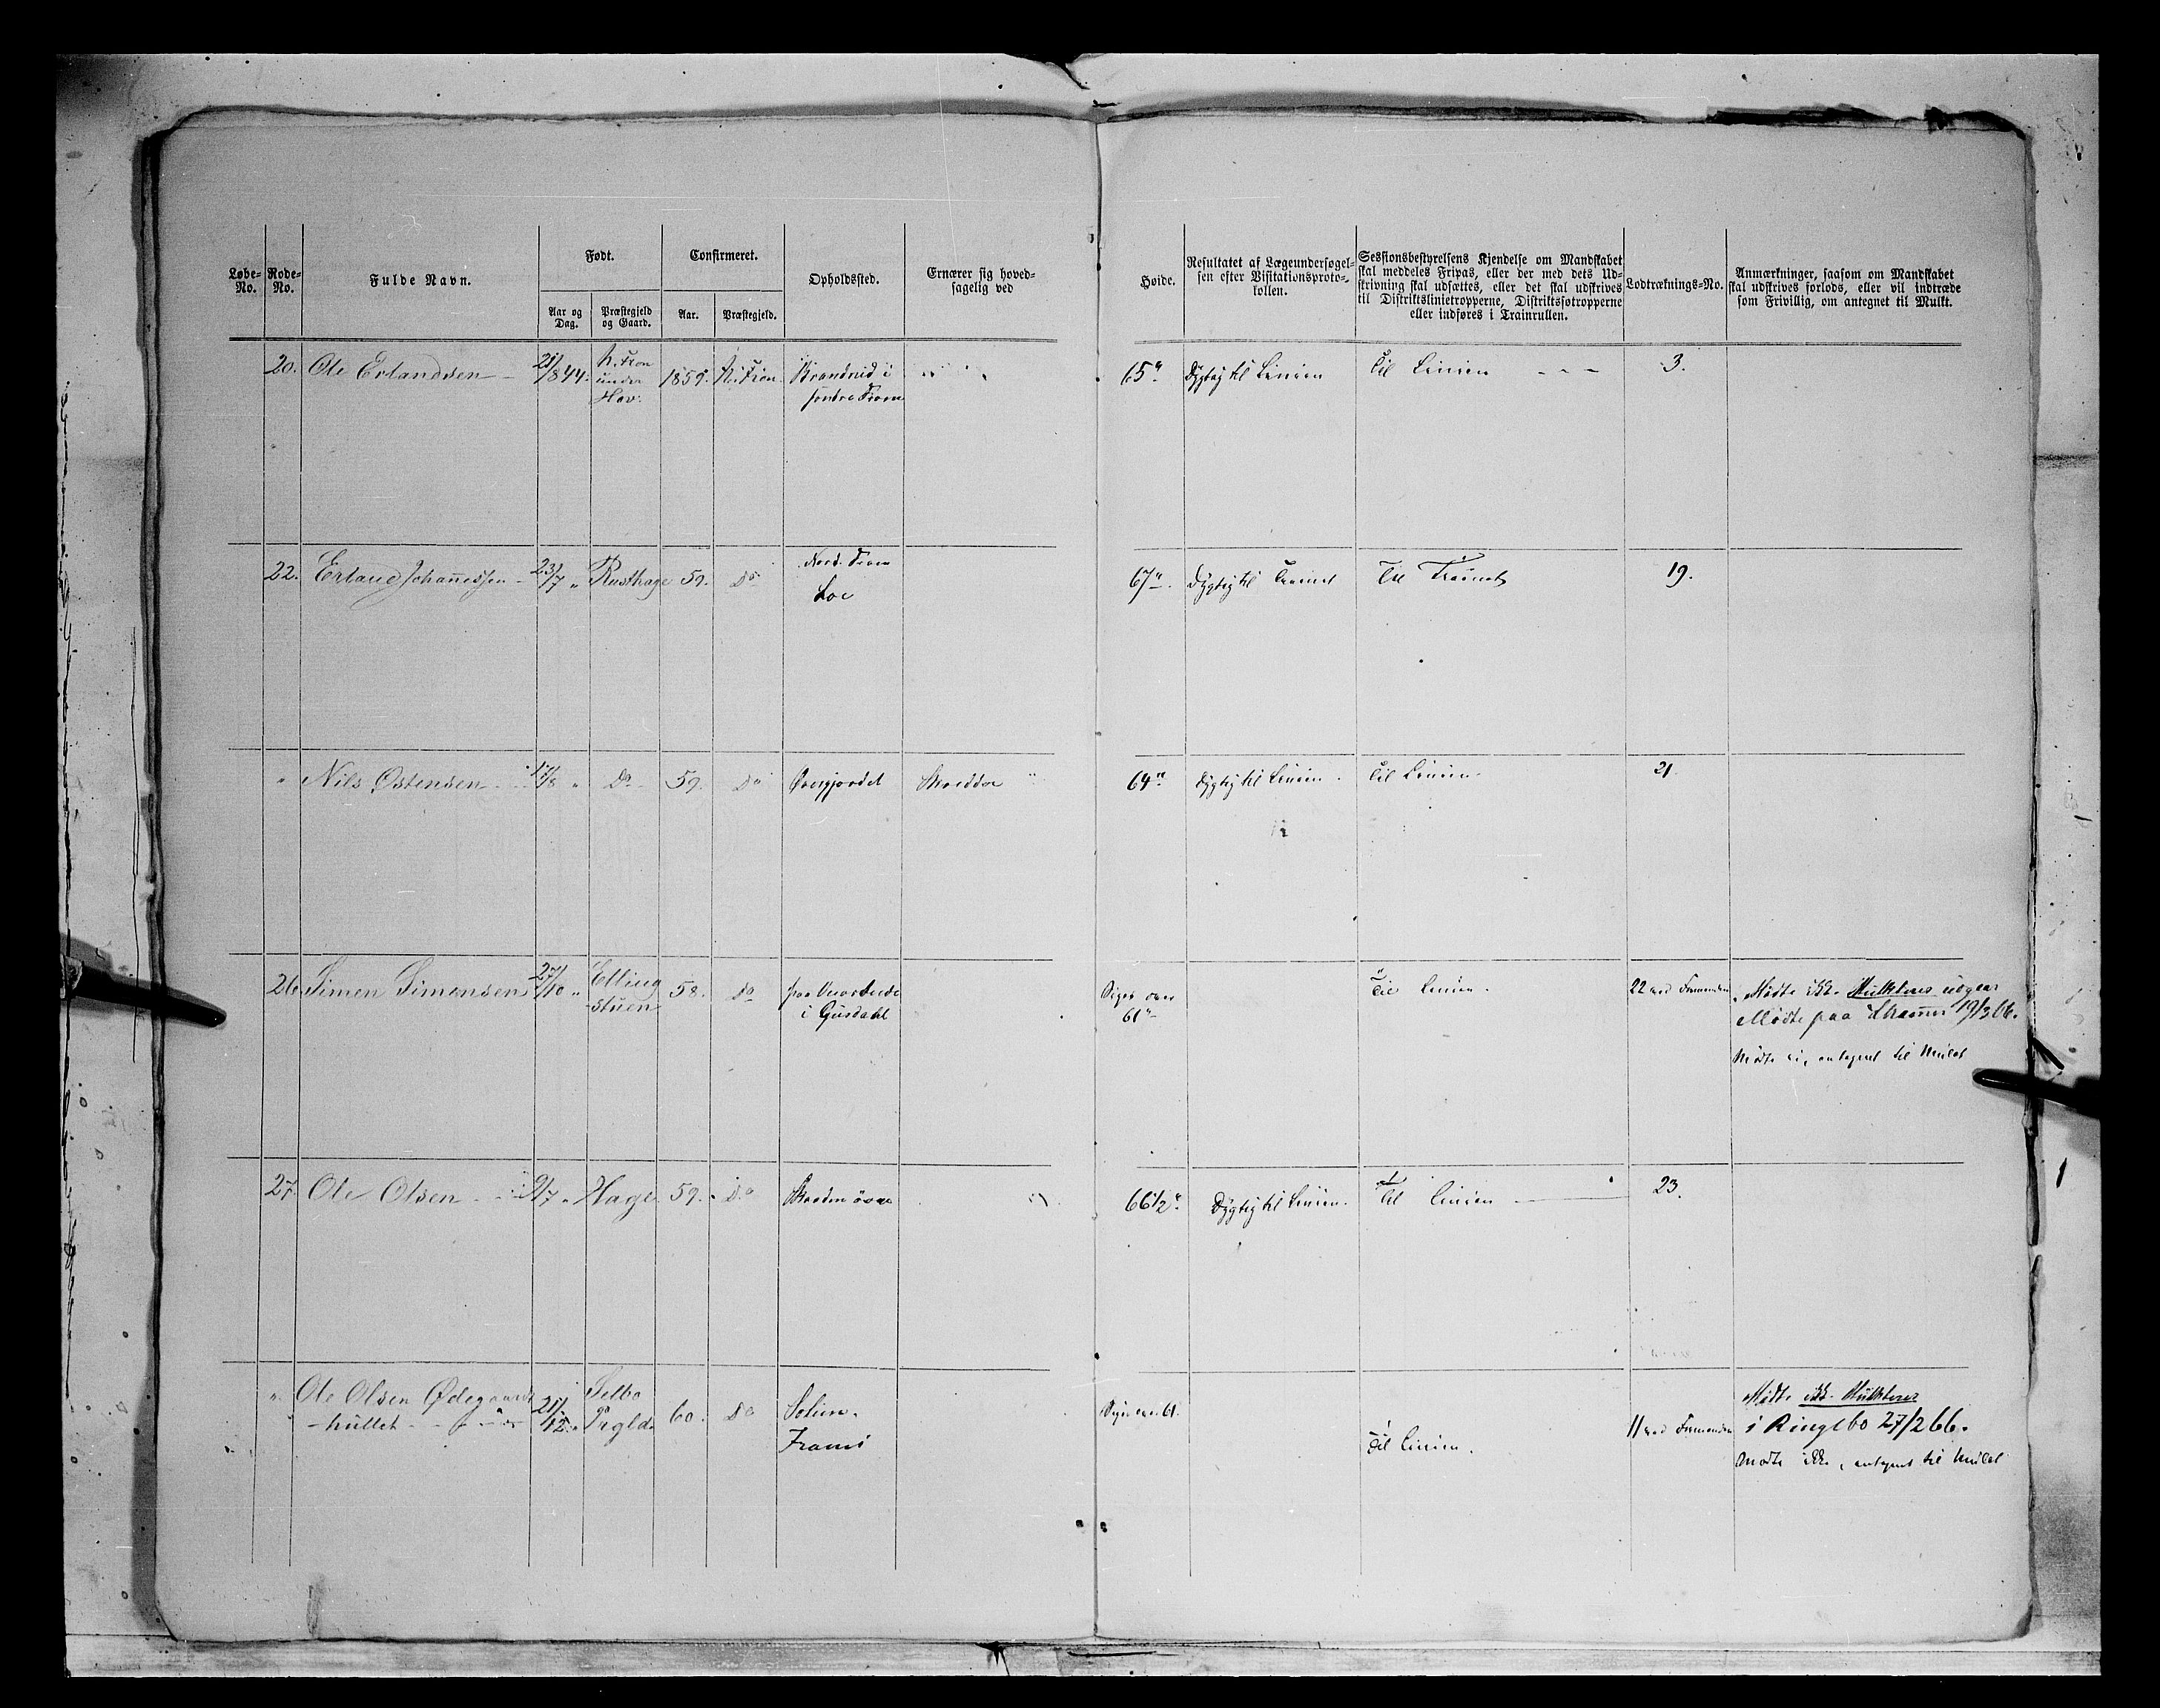 Løbe-No.
Rode-No.
Fulde Navn.
Født.
Aar og Dag.
Præstegjeld og Gaard.
Confirmeret.
Aar.
Præstegjeld.
Opholdssted.
Ernærer sig hoved-
sagelig ved
Høide.
Resultatet af Lægeundersøgel-
sen efter Visitationsproto-
kollen.
Sessionsbestyrelsens Kjendelse om Mandskabet
skal meddeles Fripas, eller der med dets Ud-
skrivning skal udsættes, eller det skal udskrives
til Distriktslinietropperne, Distriktssøtropperne
eller indføres i Trainrullen.
Lodtræknings-No.
Anmærkninger, saasom om Mandskabet
skal udskrives forlods, eller vil indtræde
som Frivillig, om antegnet til Mulkt.
20. Ole Erlandsen 21/1844. N. Fron 1859. N. Fron i
under
Hov. søndre Fron
65" Dygtig til Linien Til Linien 3.
22. Erland Johannessen 23/7 " Rusthage 59. Do Nord. Fron
Loe
67" Dygtig til Trainet Til Trainet 19.
" Nils Østensen 17/8 " Do 59. Do Øvergjordet Skredder
64" Dygtig til Linien. Til Linien. 21.
26. Simen Simensen 27/10 " Elling 58. Do paa
stuen i Gusdahl
Siges over Til Linien. 22 ved Formanden Mødte ikke.
61" Mødte paa 19/3 66.
Mødte ei, antegnet til Mulct
27. Ole Olsen 9/7 " Hage 59. Do
66 1/2" Dygtig til Linien. Til Linien 23.
" Ole Olsen Ødegaards 21/12 " Selbo 60. Do Solien.
hullet Prgld.
Siges over 61. Til Linien. 11 ved Formanden Mødte ikke.
i Ringebo 27/2 66.
Mødte ikke, antegnet til Mulct